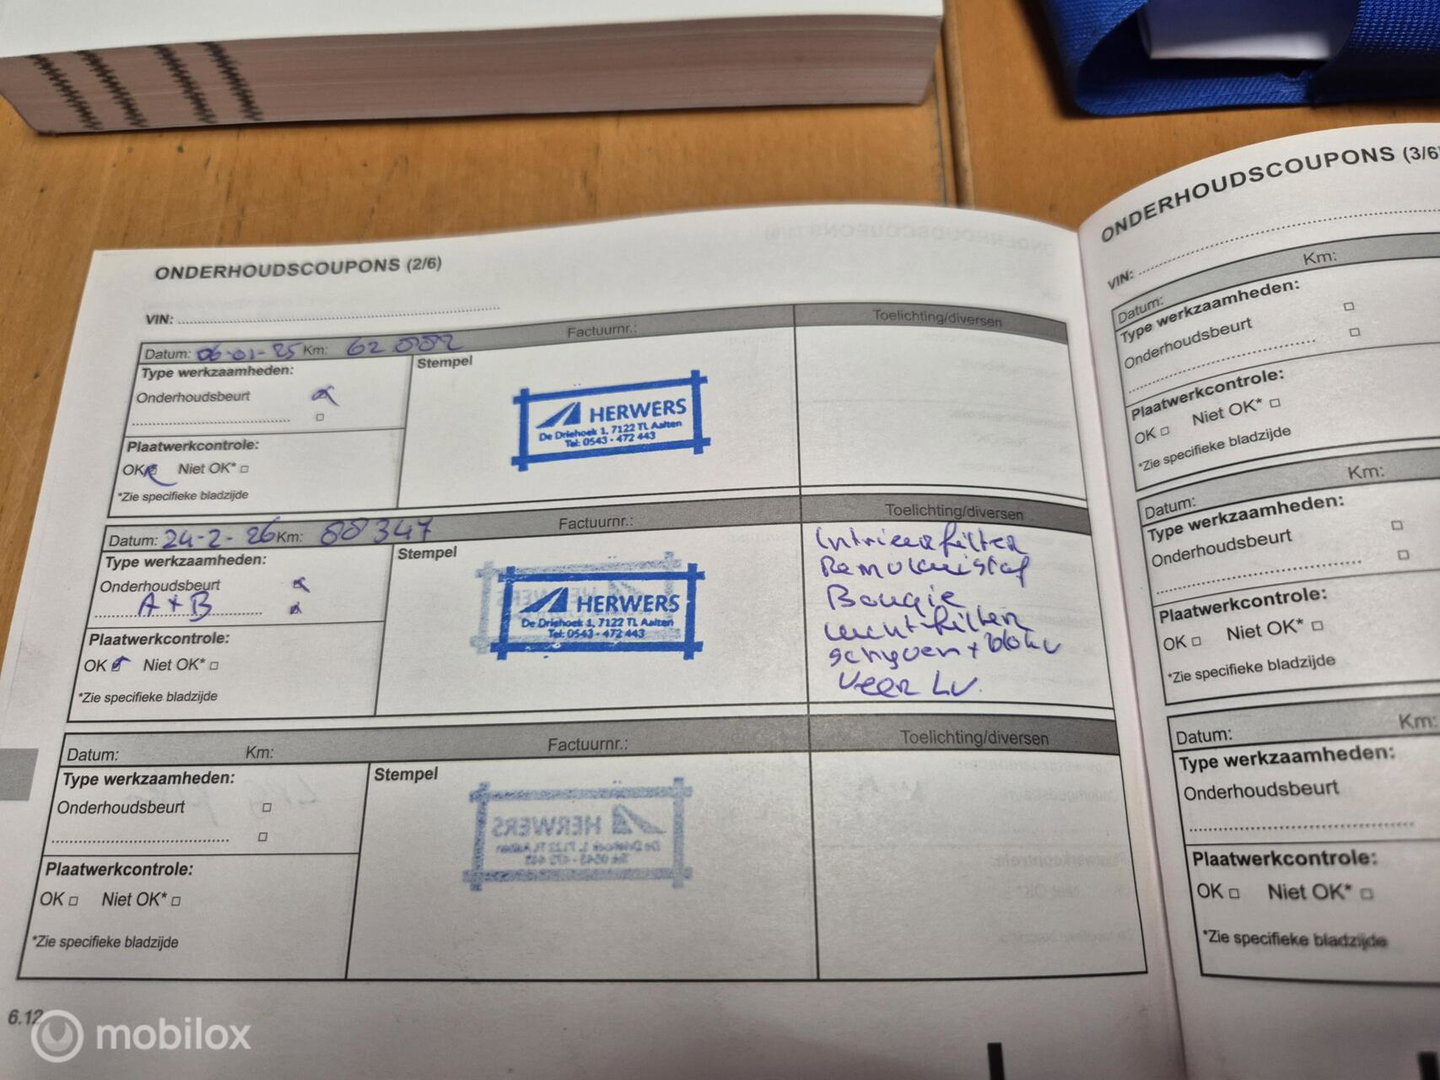 ONDERHOUDSCOUPONS (2/6)
VIN:
Datum: 06-01-25 Km: 62 002 Factuurnr.: Toelichting/diversen
Type werkzaamheden:
Onderhoudsbeurt
Stempel
HERWERS
De Driehoek 1, 7122 TL Aalten
Tel: 0543 - 472 443
Plaatwerkcontrole:
OK Niet OK*
*Zie specifieke bladzijde
Datum: 24-2-26 Km: 88 347 Factuurnr.: Toelichting/diversen
Type werkzaamheden:
Onderhoudsbeurt
A + B
Stempel
HERWERS
De Driehoek 1, 7122 TL Aalten
Tel: 0543 - 472 443
Plaatwerkcontrole:
OK Niet OK*
*Zie specifieke bladzijde
Bougie
Luchtfilter
schijven + blokk
Veer LV.
Datum: Km: Factuurnr.: Toelichting/diversen
Type werkzaamheden:
Onderhoudsbeurt
Stempel
HERWERS
Plaatwerkcontrole:
OK Niet OK*
*Zie specifieke bladzijde
6.12
ONDERHOUDSCOUPONS (3/6)
VIN:
Datum: Km:
Type werkzaamheden:
Onderhoudsbeurt
Plaatwerkcontrole:
OK Niet OK*
*Zie specifieke bladzijde
Datum: Km:
Type werkzaamheden:
Onderhoudsbeurt
Plaatwerkcontrole:
OK Niet OK*
*Zie specifieke bladzijde
Datum: Km:
Type werkzaamheden:
Onderhoudsbeurt
Plaatwerkcontrole:
OK Niet OK*
*Zie specifieke bladzijde
mobilox